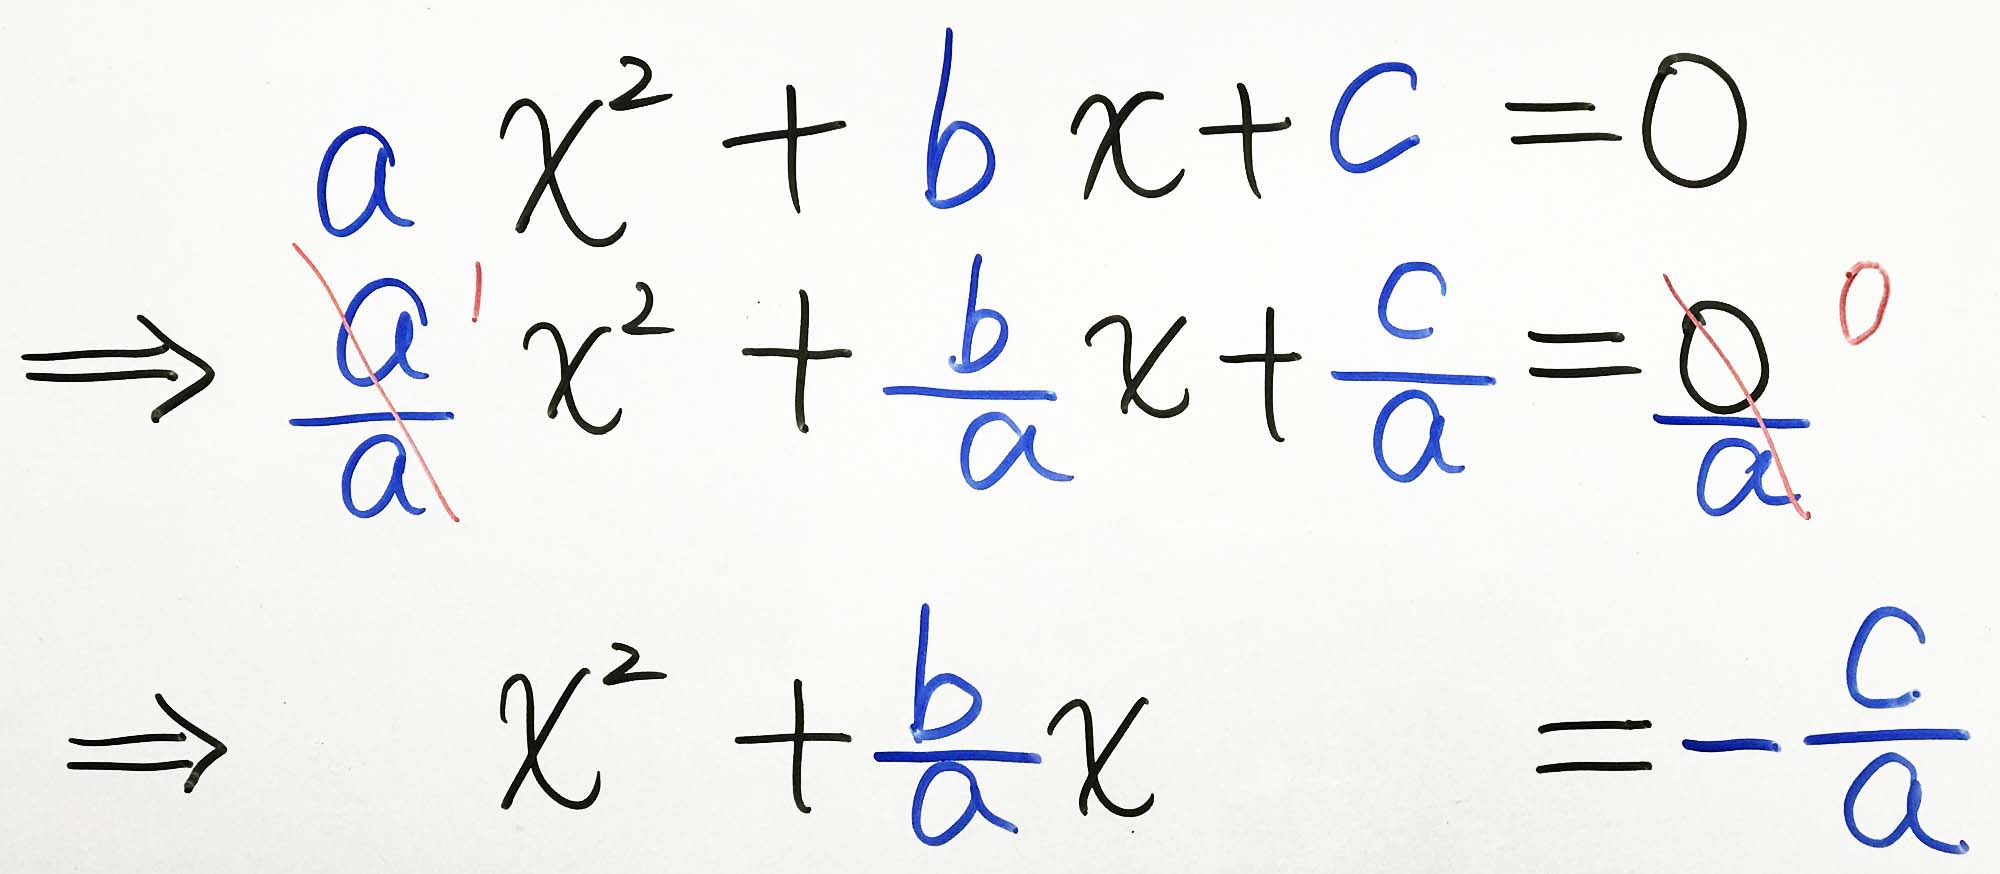 a x² + b x + c = 0
⇒ a/a 1 x² + b/a x + c/a = 0/a 0
⇒ x² + b/a x = - c/a